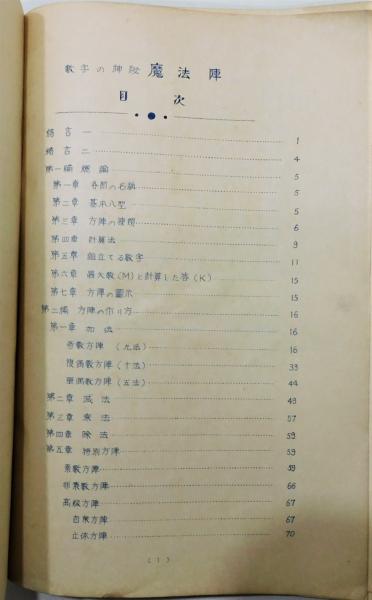 数字の神殿 魔法陣
目次
緒言一 1
緒言二 4
第一編 概論 5
第一章 各部の名称 5
第二章 基本八型 5
第三章 方陣の種類 6
第四章 計算法 9
第五章 組立てる数字 11
第六章 最大数(M)と計算した答(K) 15
第七章 方陣の図示 15
第二編 方陣の作り方 16
第一章 加法 16
奇数方陣 (九法) 16
複偶数方陣 (十法) 33
単偶数方陣 (五法) 44
第二章 減法 49
第三章 乗法 57
第四章 除法 59
第五章 特別方陣
素数方陣 59
非素数方陣 66
高級方陣 67
自乗方陣 67
立体方陣 70
(1)